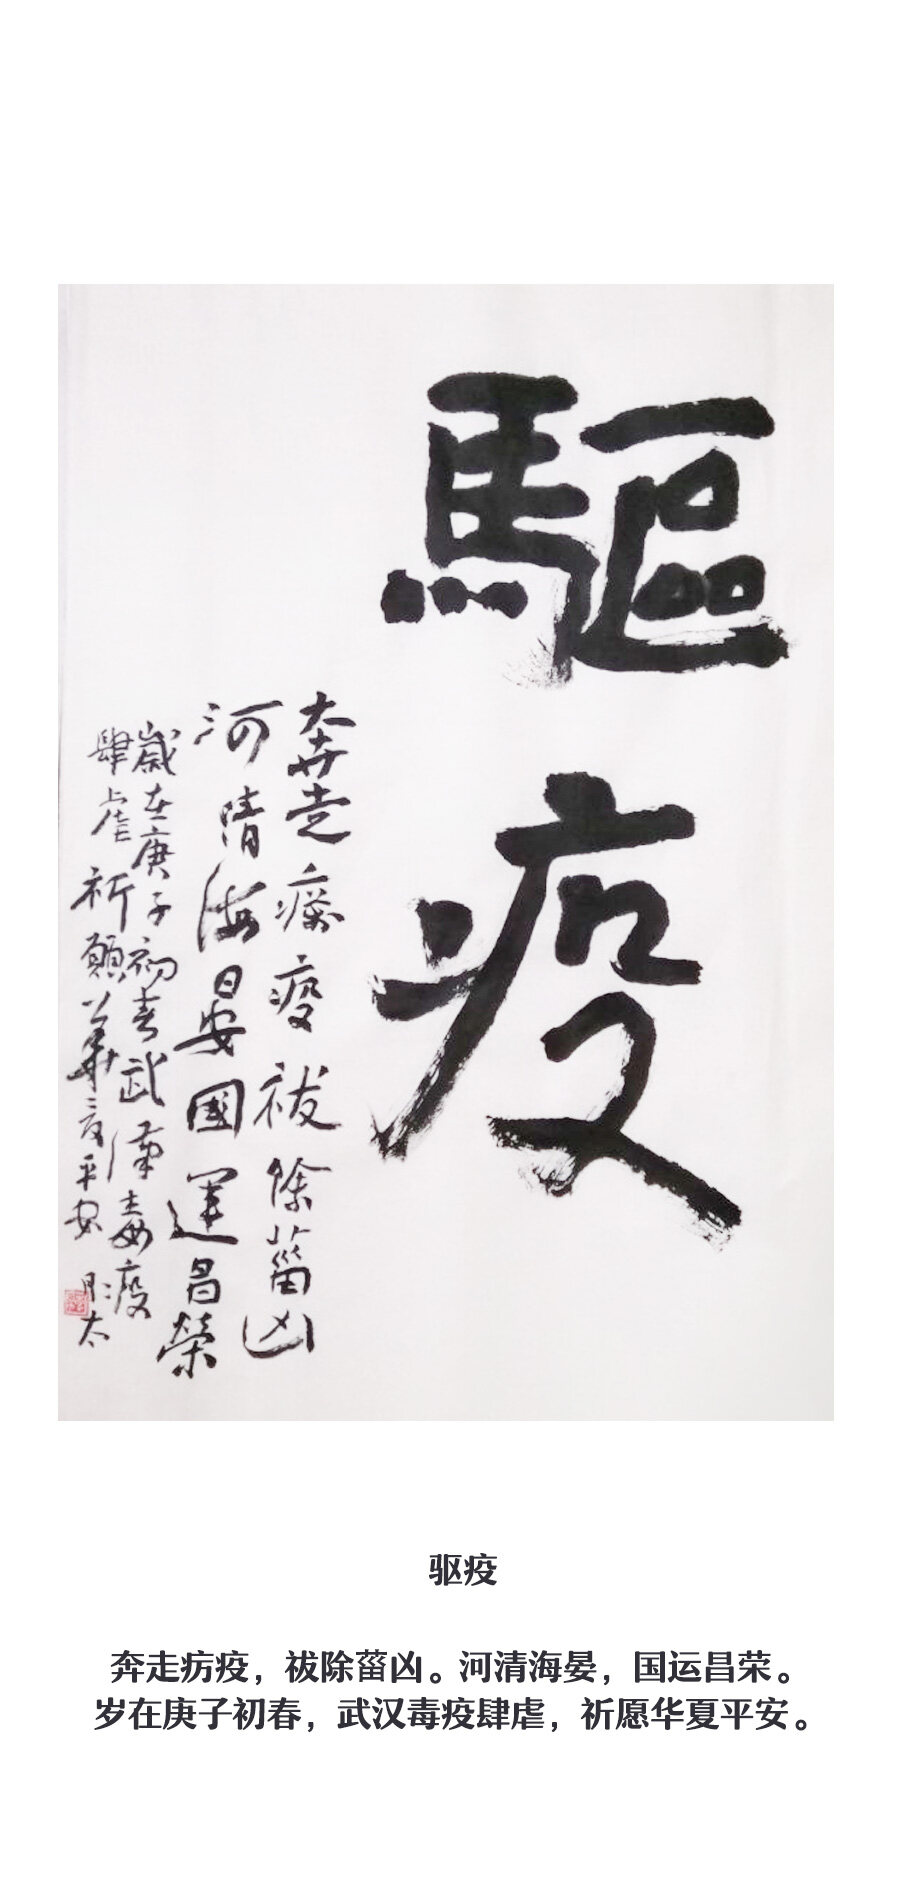 驅疫
奔走癘疫祓除菑凶
河清海晏國運昌榮
歲在庚子初春武漢毒疫
肆虐祈願華夏平安
驱疫
奔走疠疫，祓除菑凶。河清海晏，国运昌荣。
岁在庚子初春，武汉毒疫肆虐，祈愿华夏平安。